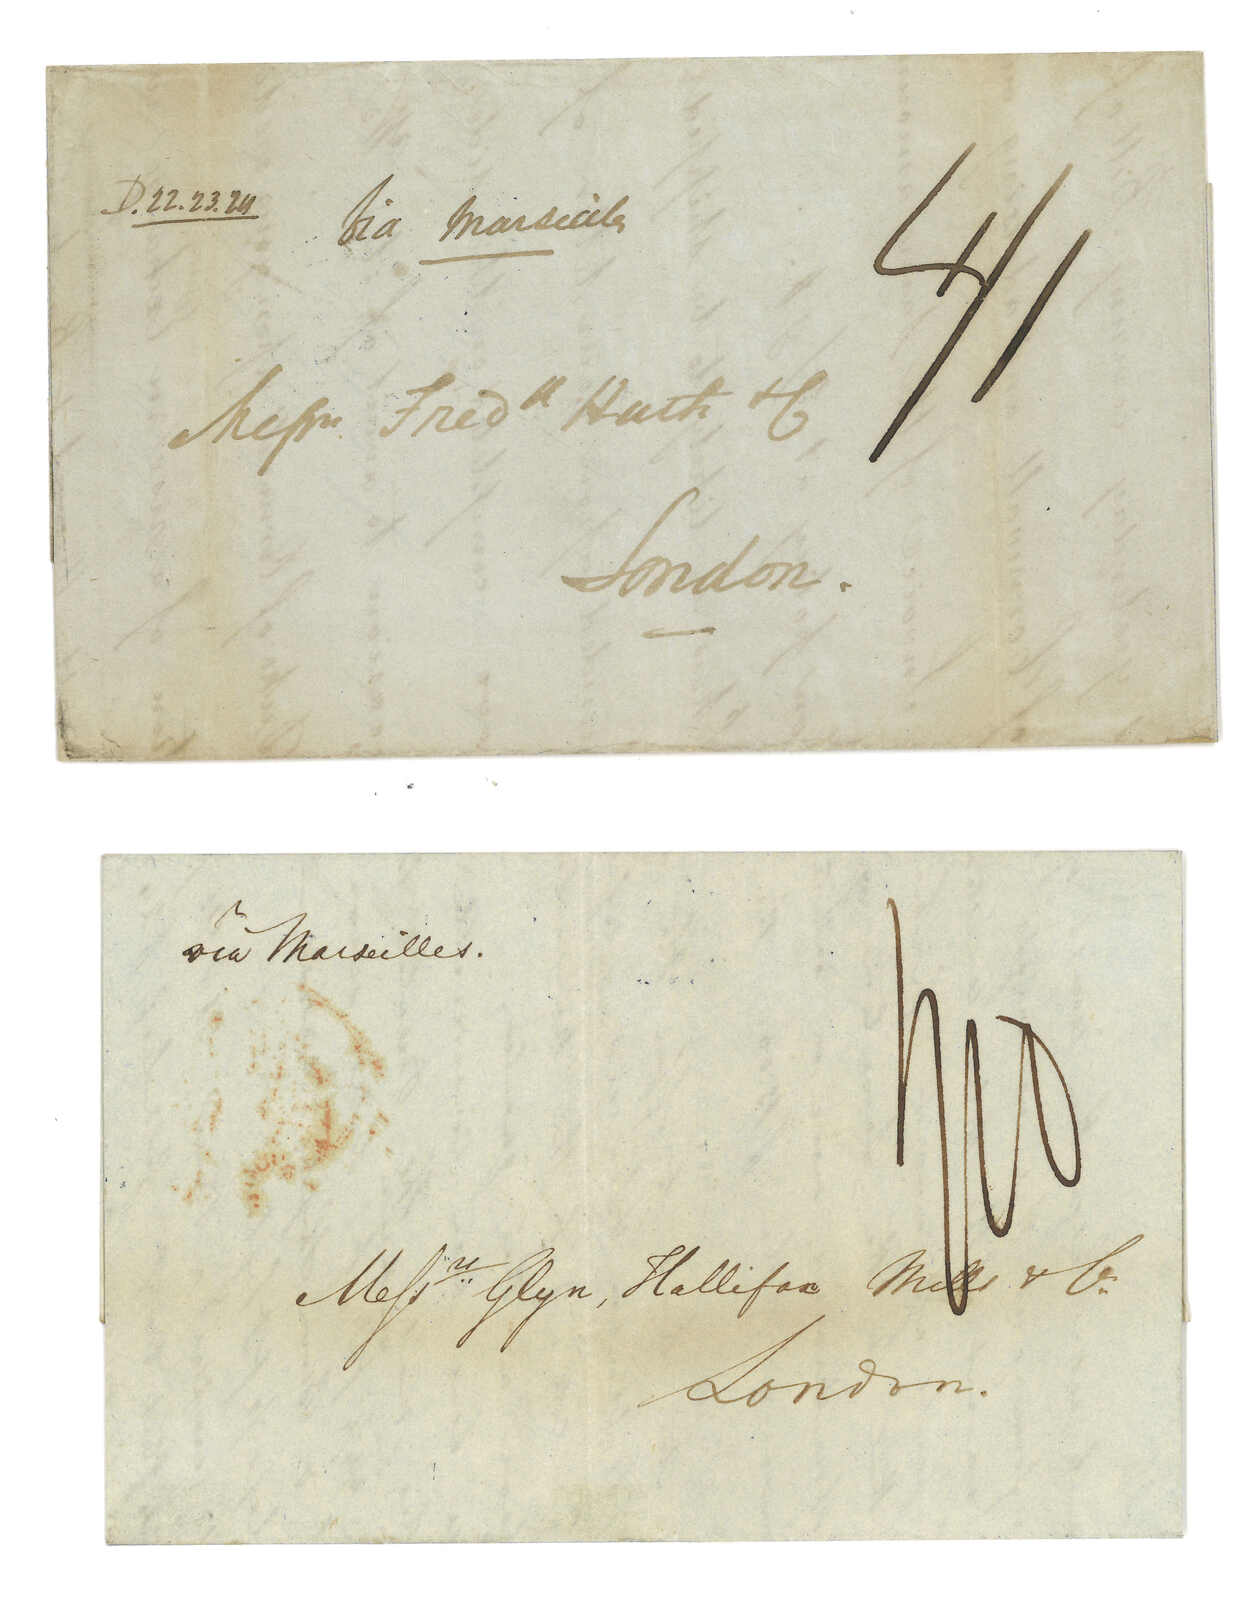 D. 22. 23. 24
Via Marseils
4/1
Messrs Fredk Huth & C
London.
via Marseilles.
Messrs Glyn, Hallifax Mills & Co
London.